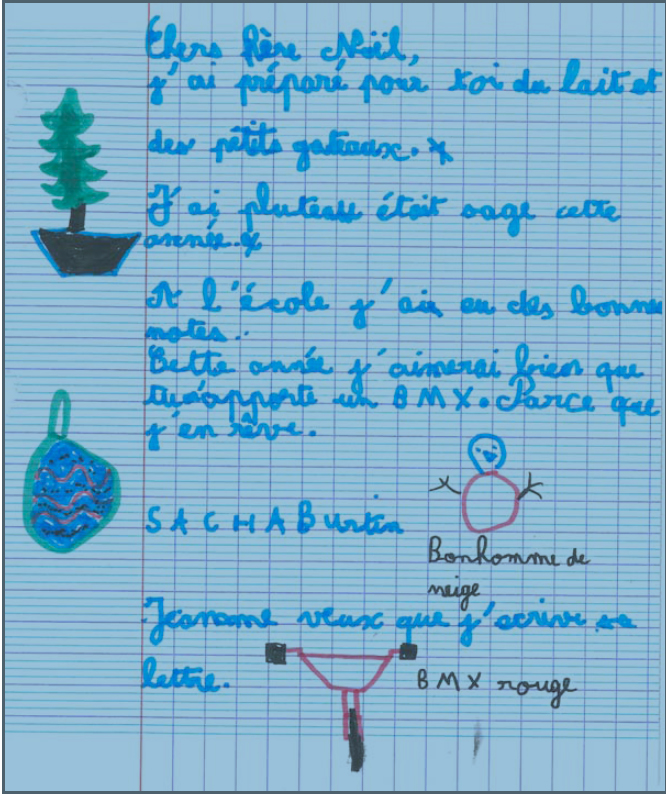 Chers Père Nöël,
j'ai préparé pour toi du lait et
des pétits gateaux.
J'ai pluteau était sage cette
année.
A l'école j'ai eu des bonne
notes.
Cette année j'aimerai bien que
tu apporte un BMX. Parce que
j'en rêve.
SACHA Burtin
Bonhomme de
neige
veux que j'écrive sa
lettre.
BMX rouge